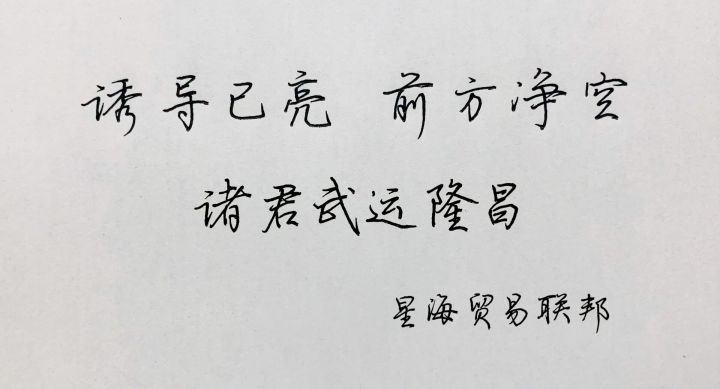 诱导已亮 前方净空
诸君武运隆昌
星海贸易联邦